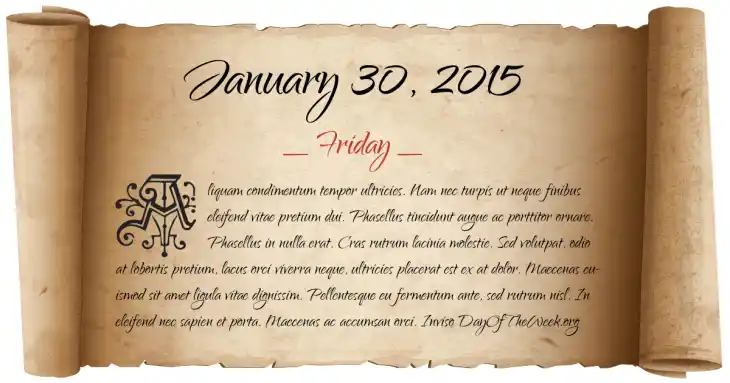 January 30, 2015
_ Friday _
Aliquam condimentum tempor ultricies. Nam nec turpis ut neque finibus
eleifend vitae pretium dui. Phasellus tincidunt augue ac porttitor ornare.
Phasellus in nulla erat. Cras rutrum lacinia molestie. Sed volutpat, odio
at lobortis pretium, lacus orci viverra neque, ultricies placerat est ex at dolor. Maecenas eu-
ismod sit amet ligula vitae dignissim. Pellentesque eu fermentum ante, sed rutrum nisl. In
eleifend nec sapien et porta. Maecenas ac accumsan orci. Inviso DayOfTheWeek.org